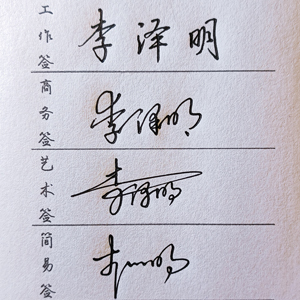 工作签 李泽明
商务签 李泽明
艺术签 李泽明
简易签 李泽明